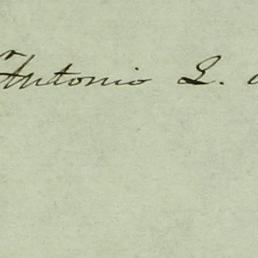 Antonio L.